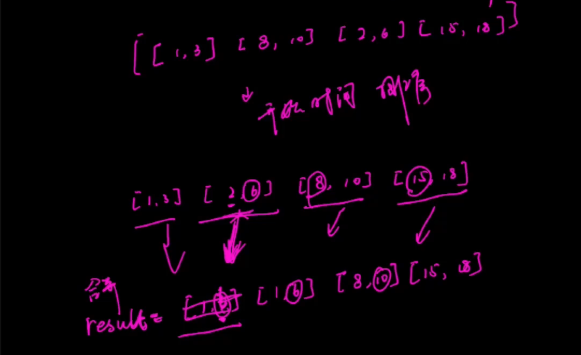 [[1,3] [8,10] [2,6] [15,18]]
↓ 开始时间 排序
[1,3] [2,6] [8,10] [15,18]
合并
result= [1,6] [8,10] [15,18]